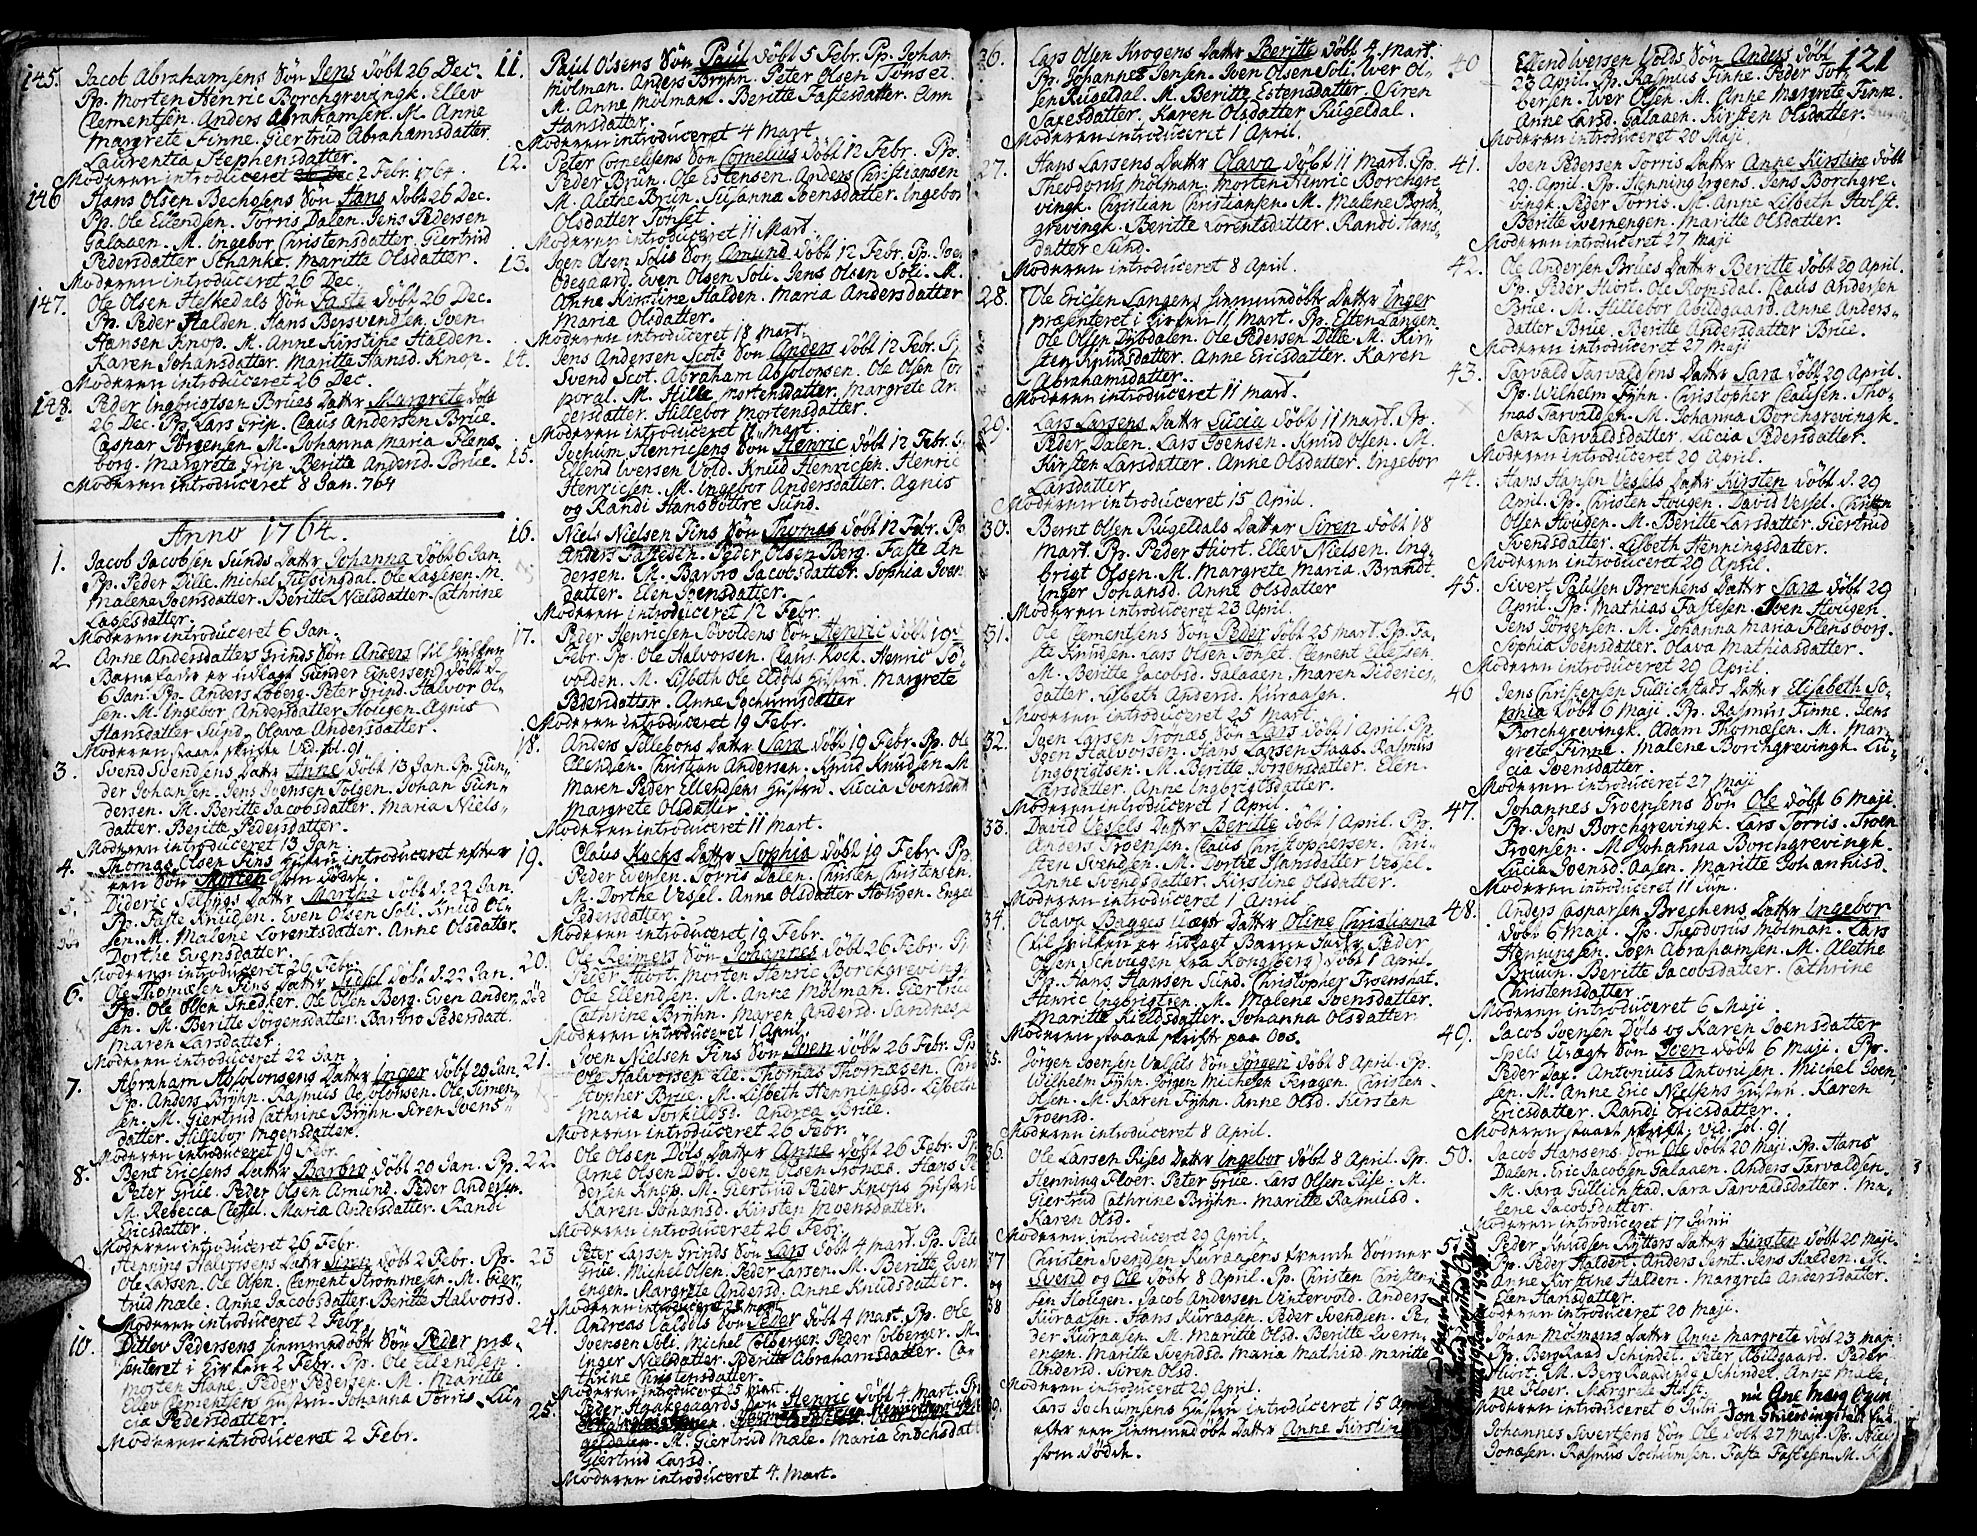 145. Jacob Abrahamsens Søn Jens døbt 26 Dec.
Pp. Morten Henric Borchgrevingk. Ellev
Clementsen. Anders Abrahamsen. M. Anne
Margrete Finne. Giertrud Abrahamsdatter
Laurentia Stephensdatter.
Moderen introduceret 2 Febr. 1764.
146 Hans Olsen Bechosens Søn Hans døbt 26 Dec.
Pp. Ole Ellendsen. Torris Dalen. Jens Pedersen
Galaaen. M. Ingebor Christensdatter. Giertrud
Pedersdatter Schanke. Maritte Olsdatter.
Moderen introduceret 26 Dec.
147. Ole Olsen Heskedals Søn Faste døbt 26 Dec.
Pp. Peder Halden. Hans Bersvendsen. Joen
Hansen Knop. M. Anne Kirstine Halden.
Karen Johansdatter. Maritte Hansd. Knop.
Moderen introduceret 26 Dec.
148. Peder Ingbrigtsen Brues Datter Margrete døbt
26 Dec. Pp. Lars Grip. Claus Andersen Brue.
Caspar Jørgensen. M. Johanna Maria Flens-
borg. Margrete Grip. Beritte Andersd. Brue.
Moderen introduceret 8 Jan. 764
Anno 1764.
1. Jacob Jacobsen Sunds Datter Johanna døbt 6 Jan.
Pp. Peder Dille. Michel Flesingdal. Ole Lassesen. M.
Malene Joensdatter. Beritte Nielsdatter. Cathrine
Lassesdatter.
Moderen introduceret 6 Jan.
2. Anne Andersdatters Grinds Søn Anders (til hvilken
Barnefader er udlagt Gunder Einersen) døbt d.
6 Jan. Pp. Anders Loberg. Peter Grind. Halvor Ol-
sen. M. Ingebor Andersdatter Hougen. Agnis
Hansdatter Sund. Olava Andersdatter.
Moderen staaet skrifte Vid. fol. 91
3. Svend Svendsens Datter Anne døbt 13 Jan. Pp. Gun-
der Johansen. Jens Joensen Solgen. Johan Gun-
dersen. M. Beritte Jacobsdatter. Maria Niels-
datter. Beritte Pedersdatter.
Moderen introduceret 13 Jan.
4. Thomas Olsen Fins Hustru introduceret efter
een Søn Morten som døde.
5. Dideric Selboes Datter Marthe døbt d. 22 Jan.
Pp. Faste Knudsen. Even Olsen Soli. Knud Ol-
sen. M. Malene Lorentsdatter. Anne Olsdatter.
Dorthe Evensdatter.
Moderen introduceret 26 Febr.
6. Ole Thomæsen Fins Datter Sidsel døbt d. 22 Jan.
Pp. Ole Olsen Snedker. Ole Olsen Berg. Even Ander-
sen. M. Beritte Jørgensdatter. Barbro Pedersdatt.
Maren Larsdatter
Moderen introduceret 22 Jan
7. Abraham Absolonsens Datter Inger døbt 20 Jan.
Pp. Anders Bryhn. Rasmus Absolonsen. Ole Simen-
sen. M. Giertrud Cathrine Bryhn. Siren Joens-
datter. Hillebor Moensdatter.
Moderen introduceret 19 Febr.
8. Bent Ericsens Datter Barbro døbt 20 Jan. Pp.
Peter Grue. Peder Olsen Amund. Peder Andersen.
M. Rebecca Clessel. Maria Andersdatter. Randi
Ericsdatter.
Moderen introduceret 26 Febr.
Henning Halvorsens Datter Siren døbt 2 Febr. Pp.
Ole Larsen. Ole Olsen. Clement Strommesen. M. Gier-
trud Mæle. Anne Jacobsdatter. Beritte Halvorsd.
Moderen introduceret 2 Febr.
10. Ditlev Pedersens hiemmedøbt Søn Peder præ-
senteret i Kirken 2 Febr. Pp. Ole Ellendsen
Morten Hane. Peder Pedersen. M. Maritte
Ellev Clementsens Hustru. Johanna Torris. Lu-
cia Pedersdatter.
Moderen introduceret 2 Febr.
11. Paul Olsens Søn Paul døbt 5 Febr. Pp. Johan
Molman. Anders Bryhn. Peter Olsen Tonset.
M. Anne Molman. Beritte Fastesdatter. Ann
Hansdatter.
Moderen introduceret 4 Mart.
12. Peter Cornelisens Søn Cornelius døbt 12 Febr. Pp.
Peder Brun. Ole Estensen. Anders Christiansen
M. Alethe Brun. Susanna Joensdatter. Ingebor
Olsdatter Tonset
Moderen introduceret 11 Mart.
13. Joen Olsen Solis Søn Amund døbt 12 Febr. Pp. Joe
Odegaard. Even Olsen Soli. Jens Olsen Soli. M.
Anne Kirstine Halden. Maria Andersdatter
Maria Olsdatter.
Moderen introduceret 18 Mart.
14. Jens Andersen Scots Søn Anders døbt 12 Febr.
Svend Scot. Abraham Absolonsen. Ole Olsen Cor
poral. M. Hille Mortensdatter. Margrete An
dersdatter. Hillebor Mortensdatter.
Moderen introduceret 11 Mart.
15. Jochum Henricsens Søn Henric døbt 12 Febr.
Ellend Iversen Vold. Knud Henricsen. Henric
Henricsen. M. Ingebor Andersdatter. Agnis
og Randi Hansdøttre Sund.
16. Niels Nielsen Fins Søn Thomas døbt 12 Febr. Pp
Anders Fastesen. Peder Olsen Berg. Faste An
dersen. M. Barbro Jacobsdatter. Sophia Iver
datter. Elen Joensdatter.
Moderen introduceret 12 Febr.
17. Peder Henricsen Sovoldens Søn Henric døbt 19
Febr. Pp. Ole Halvorsen. Claus Kock. Henric So-
volden. M. Lisbeth Ole Eldols Hustru. Margrete
Pedersdatter. Anne Jochumsdatter
Moderen introduceret 19 Febr.
18. Anders Tillebons Datter Sara døbt 19 Febr. Pp. Ole
Ellendsen. Christian Andersen. Knud Knudsen. M
Maren Peder Ellendsens Hustru. Lucia Joensdatt
Margrete Olsdatter
Moderen introduceret 11 Mart.
19. Claus Kocks Datter Sophia døbt 19 Febr. Pp.
Peder Evensen. Torris Dalen. Christen Christensen.
M. Dorthe Vessel. Anne Olsdatter Hougen. Engel
Pedersdatter.
Moderen introduceret 19 Febr.
20. Ole Reimers Søn Johannes døbt 26 Febr. P
Peder Hiort. Morten Henric Borchgreving
Død Ole Ellendsen. M. Anne Molman. Giertrud
Cathrine Bryhn. Maren Andersd. Sandnese
Moderen introduceret 1 April.
21. Joen Nielsen Fins Søn Joen døbt 26 Febr. Pp
Ole Halvorsen Lie. Thomas Thomæsen. Chri
stopher Brue. M. Lisbeth Henningsd. Lisbeth
Maria Torkildsd. Andrea Brue.
Moderen introduceret 26 Febr.
22. Ole Olsen Dols Datter Anne døbt 26 Febr. Pp
Arne Olsen Dol. Joen Olsen Tronæs. Hans Pe
dersen Knop. M. Giertrud Peder Knops Hustru
Karen Johansd. Kirsten Moensdatter.
Moderen introduceret 26 Febr.
23 Peter Larsen Grinds Søn Lars døbt 4 Mart. Pp. Pete
Grue. Michel Olsen. Peder Larsen. M. Beritte Kvern
engen. Margrete Andersd. Anne Knudsdatter.
Moderen introduceret 25 Mart.
24. Andreas Valdals Søn Peder døbt 4 Mart. Pp. Ole
Joensen Soli. Michel Colbersen. Peder Colberger. M.
Inger Nielsdatter. Beritte Abrahamsdatter. Ca
thrine Christensdatter.
Moderen introduceret 25 Mart.
25. Peder Haakesgaards Søn Henric døbt 4 Mart. Pp
geldalen. M. Giertrud Mæle. Maria Enochsdatt
Giertrud Larsd.
Moderen introduceret 4. Mart.
26. Lars Olsen Krogens Datter Beritte døbt 4 Mart.
Pp. Johannes Jensen. Joen Olsen Soli. Iver Ol-
sen Rugeldal. M. Beritte Estensdatter. Siren
Saxesdatter. Karen Olsdatter Rugeldal.
Moderen introduceret 1 April.
27. Hans Larsens Datter Olava døbt 11 Mart. Pp.
Theodorus Molman. Morten Hinric Borchgre
vingk. Christian Christiansen. M. Malene Borch-
grevingk. Beritte Lorentsdatter. Randi Hans-
datter Sund.
Moderen introduceret 8 April.
28. Ole Ericsen Langens hiemmedøbt Datter Inger
præsenteret i Kirken 11 Mart. Pp. Esten Langen.
Ole Olsen Dybdalen. Ole Pedersen Dille. M. Kir-
sten Knudsdatter. Anne Ericsdatter. Karen
Abrahamsdatter.
Moderen introduceret 11 Mart.
29. Lars Larsens Datter Lucia døbt 11 Mart. Pp.
Peder Dalen. Lars Joensen. Knud Olsen. M.
Kirsten Larsdatter. Anne Olsdatter. Ingebor
Larsdatter
Moderen introduceret 15 April.
30. Bernt Olsen Rugeldals Datter Siren døbt 18
Mart. Pp. Peder Hiort. Ellev Nielsen. Ing-
brigt Olsen. M. Margrete Maria Brandt.
Inger Johansd. Anne Olsdatter
Moderen introduceret 23 April.
31. Ole Clementsens Søn Peder døbt 25 Mart. Pp. Fa-
ste Knudsen. Lars Olsen Tonset. Clement Ellefsen.
M. Beritte Jacobsd. Galaaen. Maren Dideric-
datter. Lisbeth Andersd. Kuraasen.
Moderen introduceret 25 Mart.
32. Joen Larsen Tronæs Søn Lars døbt 1 April. Pp.
Joen Halvorsen. Hans Larsen Haas. Rasmus
Ingbrigtsen. M. Beritte Jørgensdatter. Elen
Larsdatter. Anne Ingbrigtsdatter.
Moderen introduceret 1 April.
33. David Vessels Datter Beritte døbt 1 April. Pp.
Anders Troensen. Claus Christophersen. Chri-
sten Svendsen. M. Dorthe Hansdatter Vessel.
Anne Svendsdatter. Kirstine Olsdatter.
Moderen introduceret 1 April
34. Olava Bagges Uægte Datter Oline Christiana
(til hvilken er udlagt Barne Fader Peder
Olsen Schougen fra Kongsberg) døbt 1 April.
Pp. Hans Hansen Sund. Christopher Troenshat.
Henric Ingbrigtsen. M. Malene Joensdatter.
Maritte Kieldsdatter. Johanna Olsdatter
Moderen staaet skrifte paa Oos.
35. Jørgen Joensen Vessels Søn Jørgen døbt 8 April. Pp.
Wilhelm Fyhn. Jørgen Michelsen Feragen. Christen
Olsen. M. Karen Fyhn. Anne Olsd. Kirsten
Troensd.
Moderen introduceret 8 April.
36. Ole Larsen Rises Datter Ingebor døbt 8 April. Pp.
Henning Floer. Peter Grue. Lars Olsen Rise. M.
Giertrud Cathrine Bryhn. Maritte Rasmusd.
Karen Olsd.
Moderen introduceret 29 April.
37 Christen Svendsen Kuraasens tvende Sønner
og Svend og Ole døbt 8 April. Pp. Christen Christen-
38 sen Hougen. Jacob Andersen Vintervold. Anders
Kuraasen. Hans Kuraasen. Peder Svendsen. Pe-
der Kuraasen. M. Maritte Olsd. Beritte Kvern-
engen. Maritte Svendsd. Maria Mathisd. Maritte
Andersd. Siren Olsd.
Moderen introduceret 29 April.
39. Lars Jochumsens Hustru introduceret 15 April
efter een hiemmedøbt Datter Anne Kirstine
som døde.
121
40 Ellend Iversen Volds Søn Anders døbt
23 April. Pp. Rasmus Finne. Peder Tor-
bersen. Iver Olsen. M. Anne Margrete Finne.
Anne Larsd. Galaaen. Kirsten Olsdatter.
Moderen introduceret 20 Maji.
41. Joen Pedersen Torris Datter Anne Kirstine døbt
29. April. Pp. Henning Irgens. Jens Borchgre-
vingk. Peder Torris. M. Anne Lisbeth Holst.
Beritte Kvernengen. Maritte Olsdatter.
Moderen introduceret 27 Maji
42. Ole Andersen Brues Datter Beritte døbt 29 April.
Pp. Peder Hiort. Ole Romsdal. Claus Andersen
Brue. M. Hillebor Abildgaard. Anne Anders-
datter Brue. Beritte Andersdatter Brue.
Moderen introduceret 27 Maji
43. Tarvald Tarvaldsens Datter Sara døbt 29 April.
Pp. Wilhelm Fyhn. Christopher Clausen. Tho-
mas Tarvaldsen. M. Johanna Borchgrevingk.
Sara Tarvaldsdatter. Lucia Pedersdatter.
Moderen introduceret 29 April.
44. Hans Hansen Vessels Datter Kirsten døbt d. 29
April. Pp. Christen Hougen. David Vessel. Christen
Olsen Hougen. M. Beritte Larsdatter. Giertrud
Svendsdatter. Lisbeth Henningsdatter.
Moderen introduceret 29 April.
45. Sivert Paulsen Brechens Datter Sara døbt 29
April. Pp. Mathias Fastesen. Joen Hougen
Jens Jørgensen. M. Johanna Maria Flensborg.
Sophia Joensdatter. Olava Mathiasdatter.
Moderen introduceret 29 April
46 Jens Christensen Gullichstads Datter Elisabeth So-
phia døbt 6 Maji. Pp. Rasmus Finne. Jens
Borchgrevingk. Adam Thomæsen. M. Mar-
grete Finne. Malene Borchgrevingk. Lu-
cia Joensdatter.
Moderen introduceret 27 Maji
47. Johannes Troensens Søn Ole døbt 6 Maji.
Pp. Jens Borchgrevingk. Lars Torris. Troen
Troensen. M. Johanna Borchgrevingk.
Lucia Joensd. Aasen. Maritte Johannisd.
Moderen introduceret 11 Jun.
48. Anders Casparsen Brechens Datter Ingebor
døbt 6 Maji. Pp. Theodorus Molman. Lars
Henningsen. Joen Abrahamsen. M. Alethe
Bruun. Beritte Jacobsdatter. Cathrine
Christensdatter
Moderen introduceret 6 Maji
49. Jacob Joensen Dols og Karen Joensdatter
Spels Uægte Søn Joen døbt 6 Maji. Pp.
Peder Dax. Antonius Antonisen. Michel Joen-
sen. M. Anne Eric Nielsens Hustru. Karen
Ericsdatter. Randi Ericsdatter.
Moderen staaet skrifte, vid. fol. 91
50. Jacob Hansens Søn Ole døbt 20 Maji. Pp. Hans
Dalen. Eric Jacobsen Galaaen. Anders Tarvaldsen.
M. Sara Gullichstad. Sara Tarvaldsdatter. Ma-
lene Jacobsdatter.
Moderen introduceret 17 Junii
51. Peder Knudsen Rytters Datter Kirsten døbt 20 Maji.
Pp. Peder Halden. Anders Jemt. Jens Halden. M.
Anne Kirstine Halden. Margrete Andersdatter.
Elen Hansdatter.
Moderen introduceret 20 Maji.
Johan Molmans Datter Anne Margrete døbt 23 Maji
Pp. BergRaad Schindel. Peter Abildgaard. Peder
Hiort. M. BergRaadinde Schindel. Anne Male-
ne Floer. Margrete Hiort.
Moderen introduceret 6 Julii
Johannes Sivertsens Søn Ole døbt 27 Maji. Pp. Niels
Jonæsen. Rasmus Jochumsen. Faste Fastesen. M. K